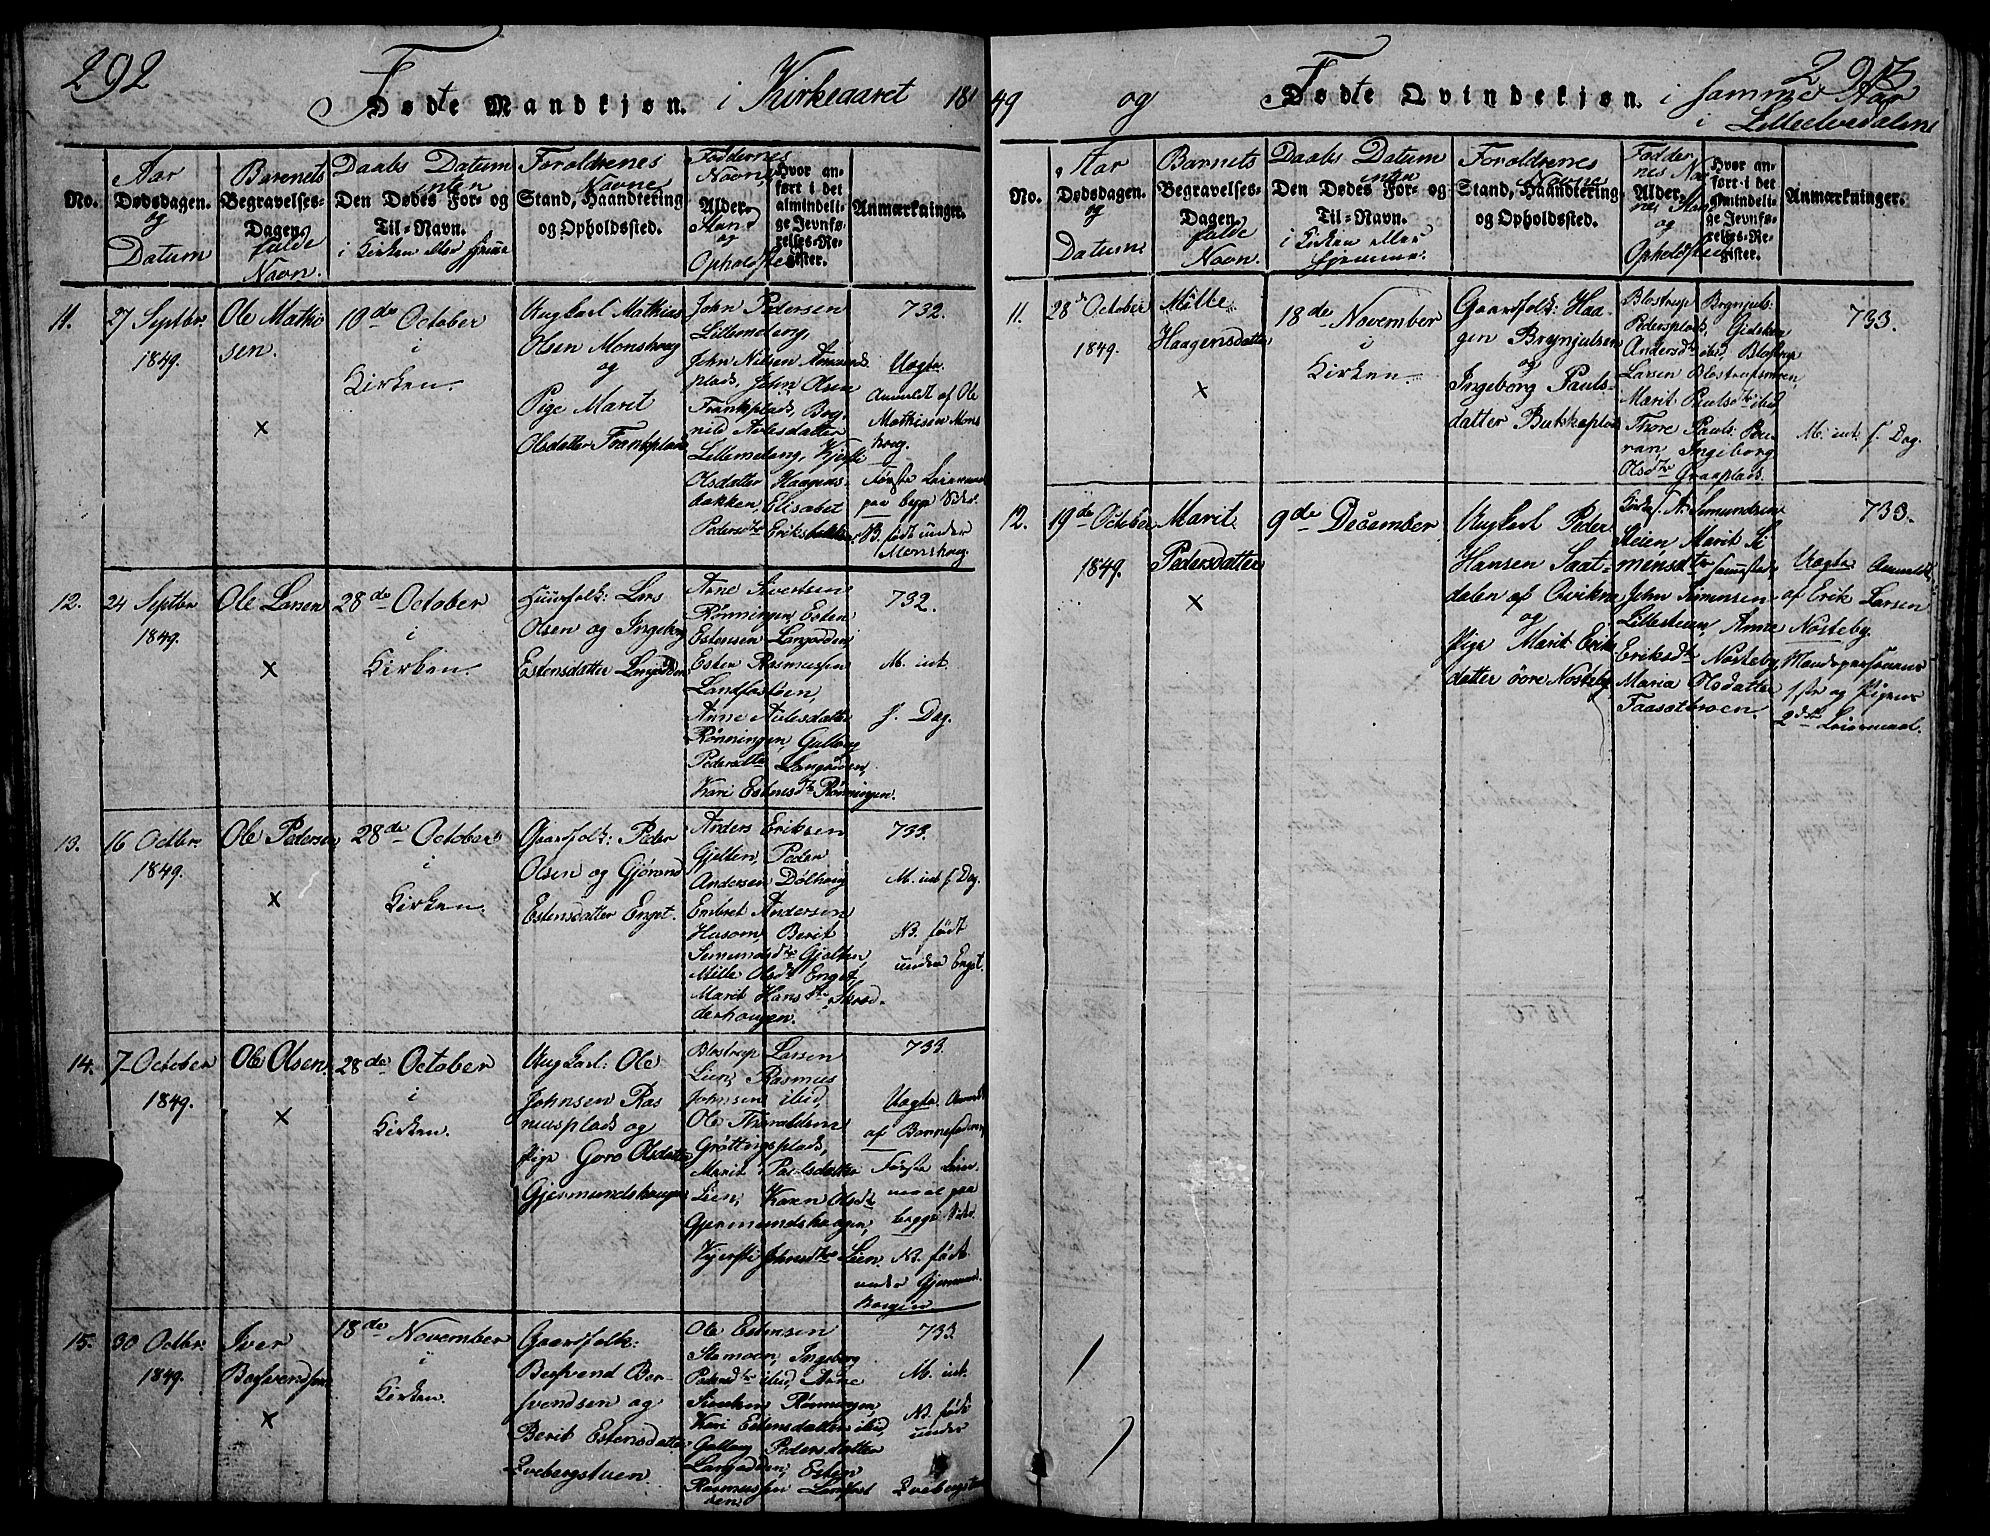 292
Fødte Mandkjøn. i Kirkeaaret 18
No.
Aar
Dødsdagen.
og
Datum
Barnets
Begravelses-
Dagen.
fulde
Navn.
Daabs Datum
enten
Den Dødes For- og
Til-Navn.
i Kirken eller hjemme
Foroldrenes
Navne
Stand, Haandtering
og Opholdssted.
Faddernes
Navne,
Alder.
Stand
og
Opholdsted
Hvor an-
ført i det
almindeli-
ge Jevnfø-
relses-Re-
gister.
Anmærkninger.
11.
27 Septbr.
1849.
Ole Mathi
sen.
×
10de October
i
Kirken.
Ungkarl Mathias
Olsen Monshoug
og
Pige Marit
Olsdatter Frankplads
John Pedersen
Lillemelong,
John Nilsen Amunds
plads, John Olsen
Frankplads, Bog-
nild Avlesdatter
Lillemelong, Kjersti
Olsdatter Haagens-
bakken, Elisabet
Pedersdtr Eriksbakken.
732.
Uægte
Anmeldt af Ole
Mathisen Mons
houg.
Første Leiermaal
paa begge Sider.
NB. født under
Monshoug.
12.
24 Septbr
1849.
Ole Larsen
×
28de October
i
Kirken.
Huusfolk: Lars
Olsen og Ingeborg
Estensdatter Langodden
Arne Sivertsen
Rønningen, Esten
Estensen Langodden,
Esten Rasmussen
Landfastøien,
Anne Avlesdatter
Rønningen, Gulborg
Pedersdtr Langodden,
Kari Estensdtr Rønningen.
732.
M. int.
f. Dag.
13.
16 Octbr.
1849.
Ole Pedersen
×
28de October
i
Kirken.
Gaardfolk: Peder
Olsen og Gjørond
Estensdatter Enget.
Anders Eriksen
Gjelten, Peder
Andersen Dølhoug
Embret Andersen
Husom, Berit
Semundsdtr Gjelten,
Mille Olsdtr Enget,
Marit Hansdtr Skrød-
derhougen.
733.
M. int. f. Dag.
NB. født
under Enget.
14.
7 October
1849.
Ole Olsen.
×
28de October
i
Kirken.
Ungkarl: Ole
Johnsen Ras
musplads og
Pige Goro Olsdatter
Gjermundshaugen
Blostrup Larsen
Lien, Rasmus
Johnsen ibid,
Ole Thoraldsen
Grøttingsplads,
Marit Paulsdatter
Lien, Karen Olsdtr
Gjermundshaugen,
Kjersti Johnsdtr Lien.
733.
Uægte Anmeldt
af Barnefaderen
Første Leier-
maal paa
begge Sider.
NB. født
under Gjermund
Hougen
15.
30 Octbr.
1849.
Iver
Bersvendsen
×
18de November
i
Kirken.
Gaardfolk:
Bersvend Ber-
svendsen og
Berit Estensdatter
Qvebergstuen.
Ole Estensen
Stemoen, Ingeborg
Pedersdtr ibid, Arne
Siverten Rønningen,
Kari Estensdatter ibid,
Gulborg Pedersdatter
Langodden, Esten
Rasmussen Landfast
øien.
733.
M. int.
NB. født
under
Qvebergstuen
49 og Fødte Qvindekjøn. i samme Aar
293
i Lilleelvedalens
No.
Aar
Dødsdagen.
og
Datum.
Barnets
Begravelses-
Dagen.
fulde
Navn.
Daabs Datum
enten
Den Dødes For- og
Til-Navn.
i Kirken eller
hjemme.
Foroldrenes
Navne
Stand, Haandtering
og Opholdssted.
Fadder
nes Nav
Alder.
ne, Stand
og
Opholdsted
Hvor an-
ført i det
almindeli-
ge Jevnfø-
relses-Re-
gister.
Anmærkninger.
11.
28de October
1849.
Mille
Haagensdatter
×
18de November
i
Kirken.
Gaardfolk: Haa-
gen Brynjulsen
og
Ingeborg Pauls-
datter Butskoplads
Blostrup Brynjuls.
Pedersplads, Gideken
Andersdtr ibid, Blostrup
Larsen Blostrupsmoen,
Marit Paulsdtr ibid
Thore Pauls. Bu-
ran, Ingeborg
Olsdtr Graaplads.
733.
M. int. f. Dag.
12.
19de October
1849.
Marit
Pedersdatter
×
9de December
Ungkarl Peder
Hansen Saat-
dalen af Qvikne
og
Pige Marit Eriks
datter øvre Nosteby
Semundsen
Steien Marit Si
mensdtr samsted,
John Simensen
Lillesteien, Anne
Eriksdtr Nosteby
Maria Olsdatter
Faasetbroen.
733.
Uægte Anmeldt
af Erik Larsen
Nosteby.
Mandspersonens
1ste og Pigens
2det Leiermaal.